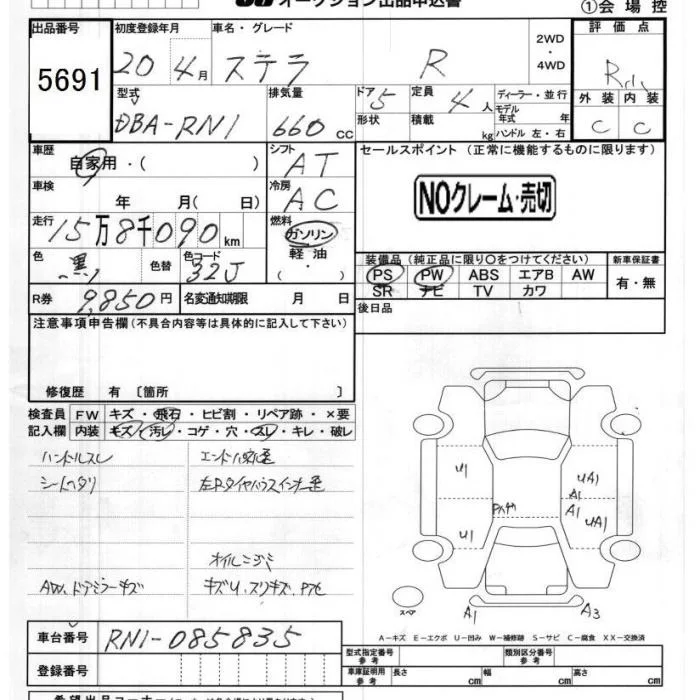 オークション出品申込書
①会場控
出品番号 初度登録年月 車名・グレード 2WD ・ 4WD 評価点
5691 20 4月 ステラ R R
外装 内装
C C
型式 排気量 ドア 定員 ディーラー・並行
DBA-RN1 660 CC 5 4人 モデル年式 年
形状 積載 kg ハンドル 左・右
車歴 シフト セールスポイント (正常に機能するものに限ります)
自家用・( ) AT
車検 冷房 NOクレーム・売切
年 月( 日) AC
走行 燃料
15万8千090km ガソリン・軽油・( )
色 色替 色コード 装備品(純正品に限り○をつけてください) 新車保証書
黒 32J PS PW ABS エアB AW 有・無
SR ナビ TV カワ
R券 9,850円 名変通知期限 月 日 後日品
注意事項申告欄(不具合内容等は具体的に記入して下さい)
修復歴 有 〔箇所 〕
検査員 FW キズ・飛石・ヒビ割・リペア跡・×要
記入欄 内装 キズ・汚レ・コゲ・穴・スレ・キレ・破レ
ハンドルスレ
シートヘタリ
オイルニジミ
AW、ドアミラーキズ
U1 UA1
A1
A1
U1 UA1
スペア A1 A3
A-キズ E-エクボ U-凹み W-補修跡 S-サビ C-腐食 XX-交換済
車台番号 RN1-085835
登録番号
型式指定番号 参考 類別区分番号 参考
車庫証明用 参考 長さ cm 幅 cm 高さ cm